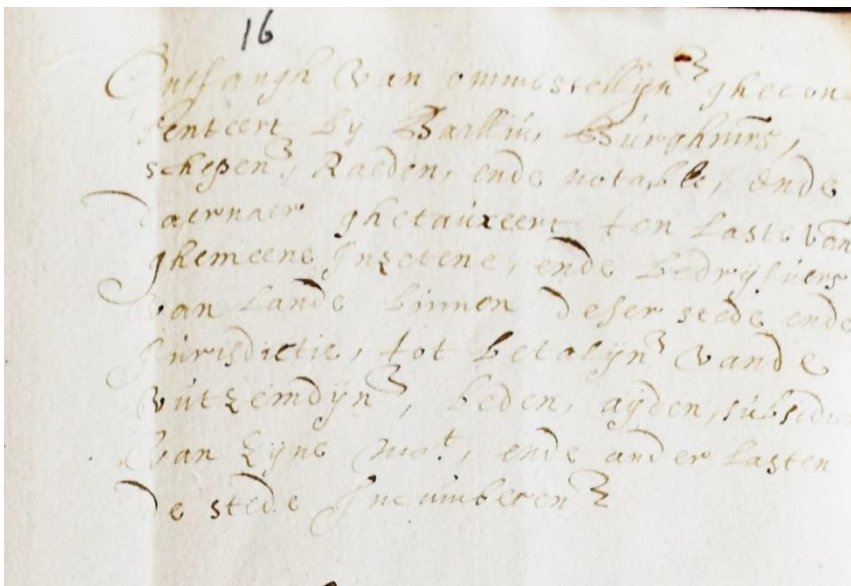 16
Ontfangh van ommestellijn ghecon
senteert by Bailliu, Burghmrs,
schepen, Raeden, ende notable, ende
daernaer ghetauxeert ten laste van
ghemeene Inzetene, ende bedryfvers
van lande binnen deser stede ende
Jurisdictie, tot betalijn vande
wtzemdijn, beden, ayden, subsidie
van zyne mat, ende ander lasten
de stede Incumberen